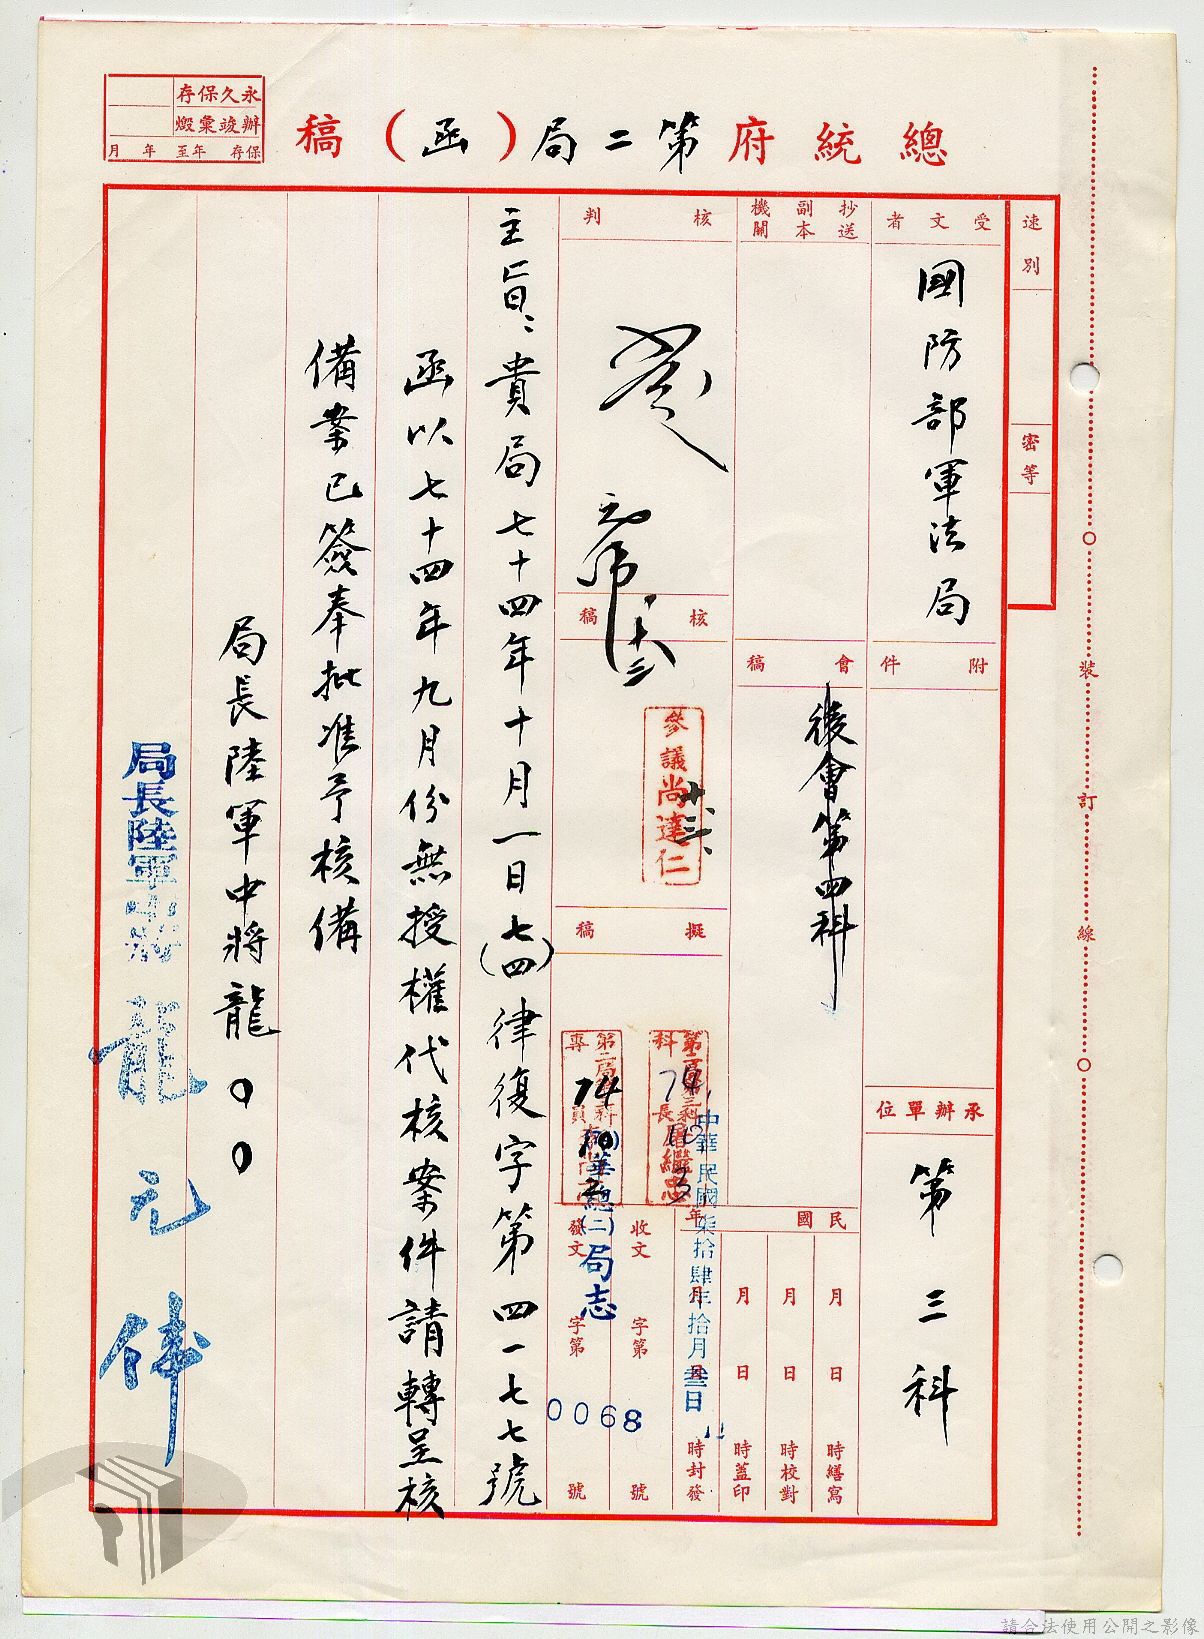 總統府第二局(函)稿
永久保存
辦竣彙燬
保存 年至 年 月
速別
密等
受文者
國防部軍法局
附件
承辦單位
第三科
抄送
副本
機關
會稿
後會第四科
民國 年
月 日 時繕寫
月 日 時校對
月 日 時蓋印
月 日 時封發
中華民國柒拾肆年拾月叁日
核判
核稿
參議尚達仁
擬稿
74
10
3
74
收文 字第 號
發文 字第 號
華總(二)局志
0068
主旨:貴局七十四年十月一日(七四)律復字第四一七七號
函以七十四年九月份無授權代核案件請轉呈核
備業已簽奉批准予核備
局長陸軍中將龍〇〇
局長陸軍中將龍元偉
裝
訂
線
請合法使用公開之影像